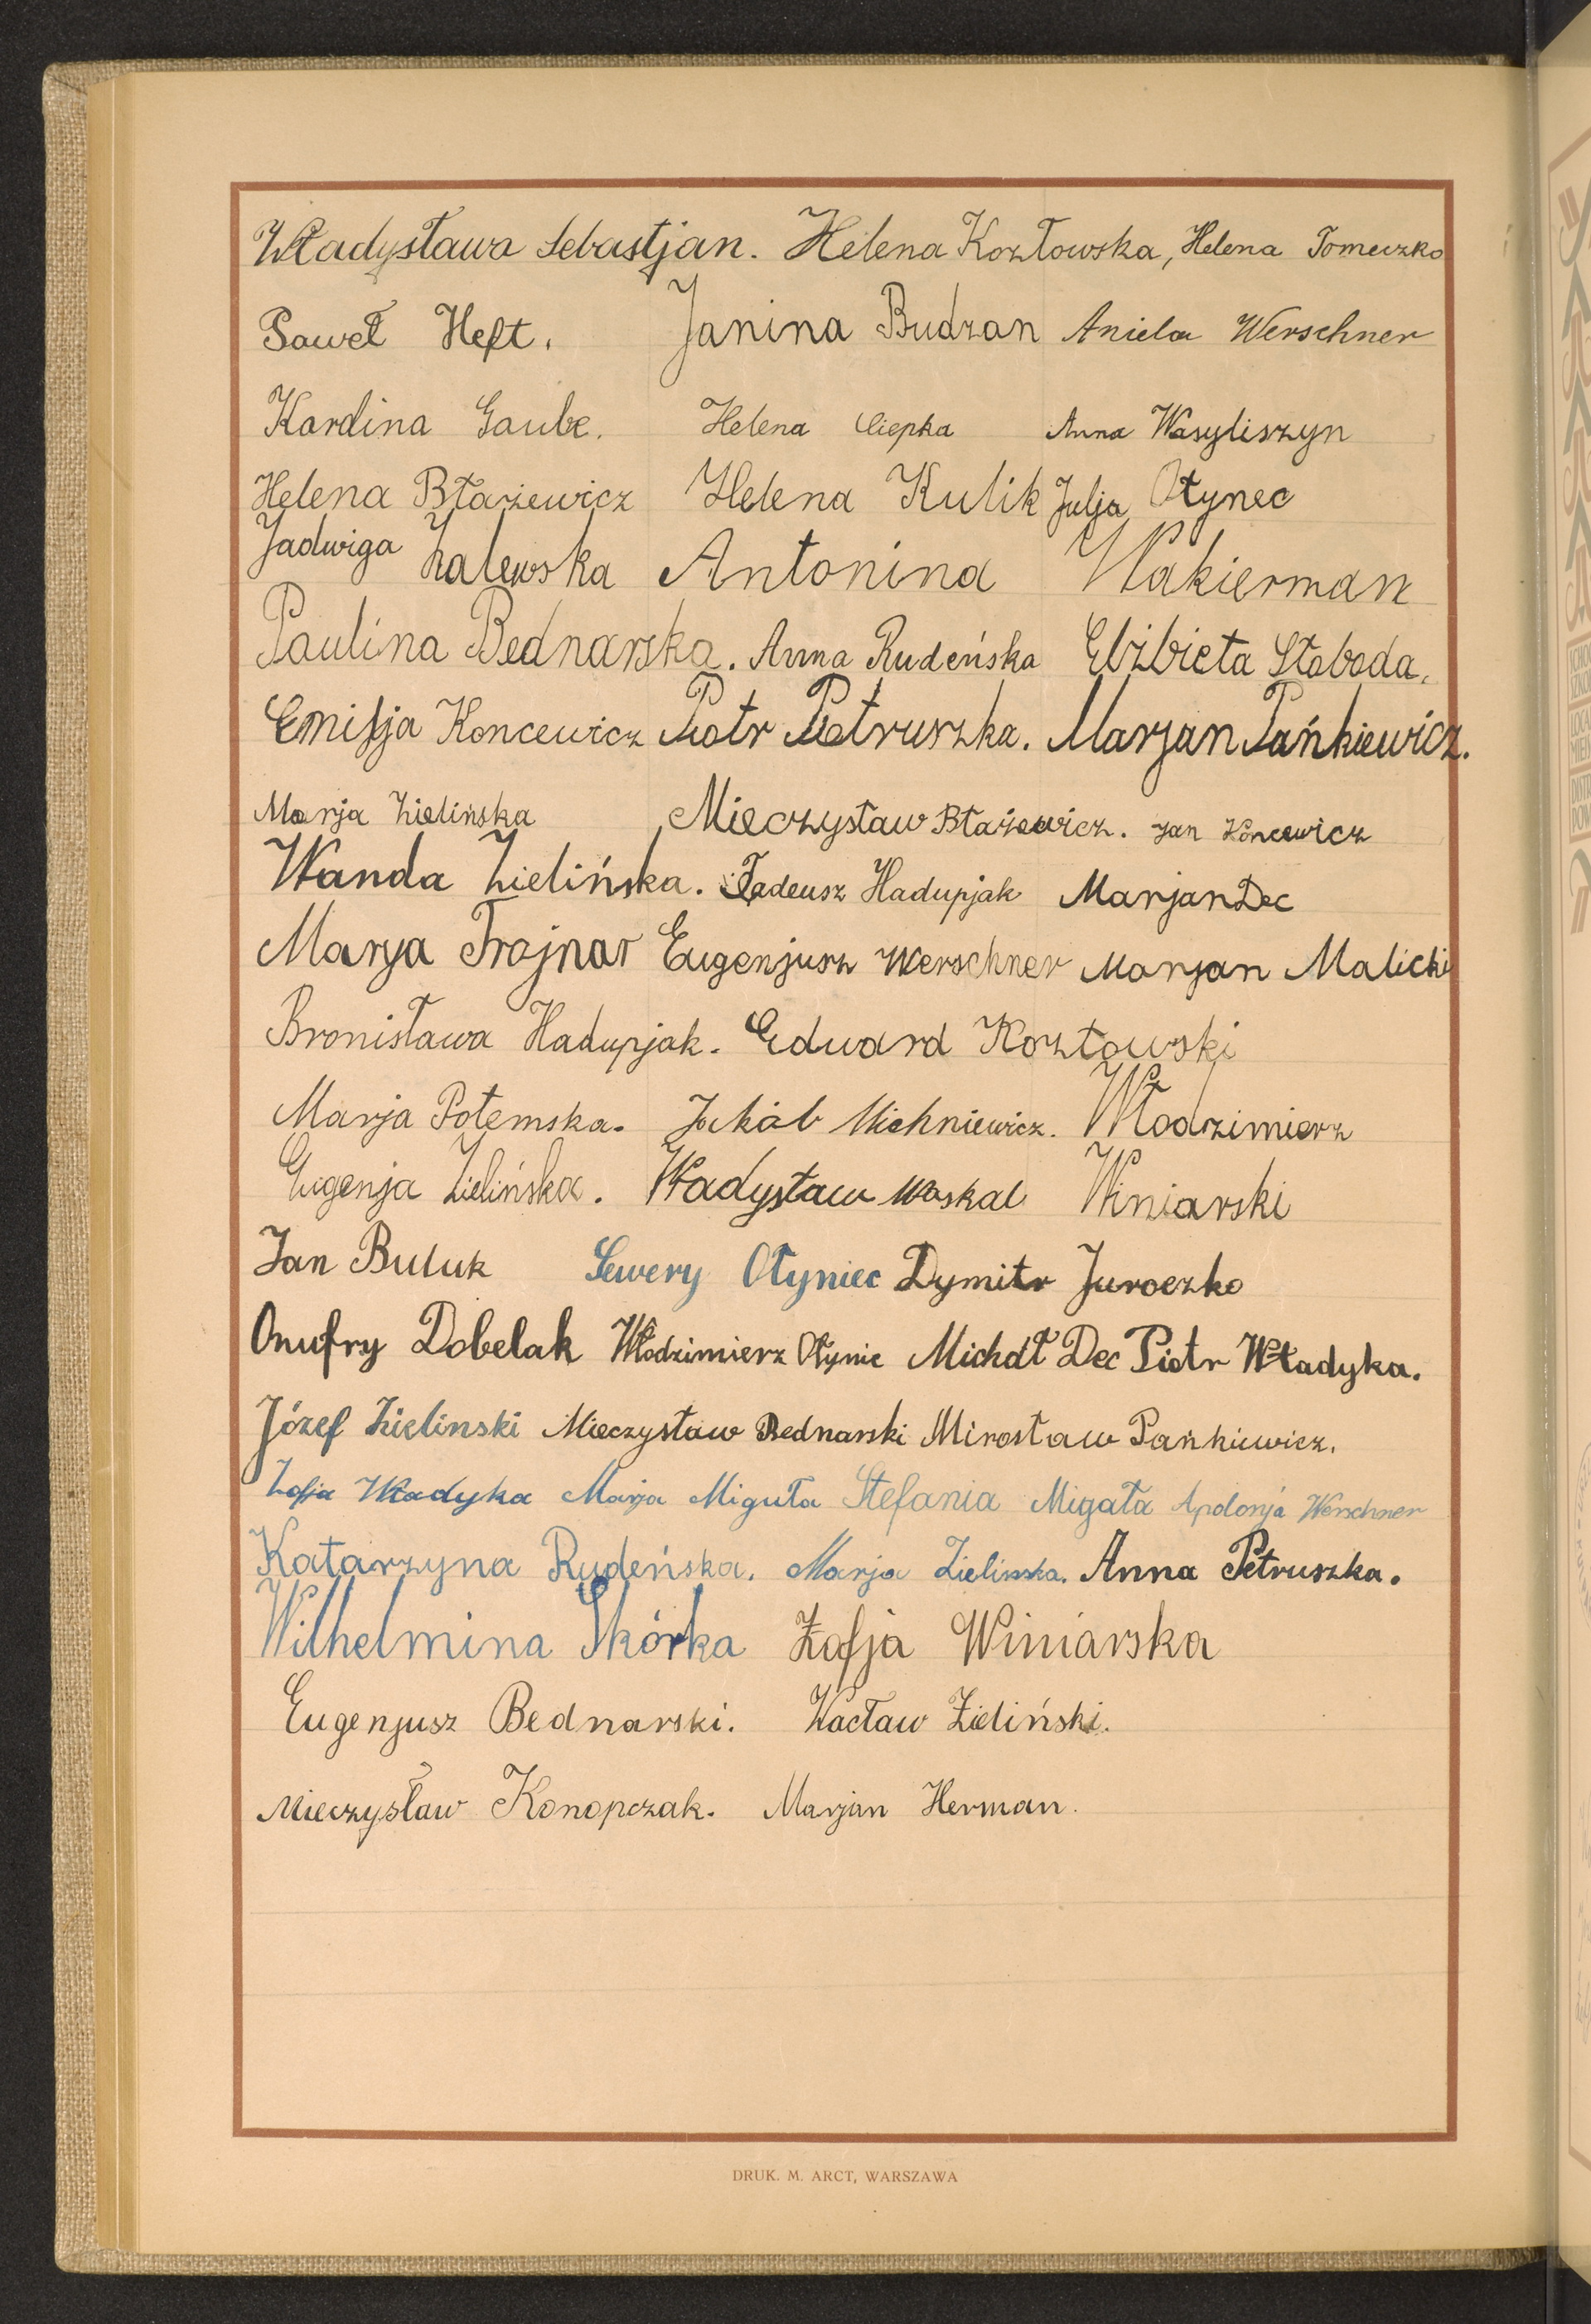 Władysława Sebastjan. Helena Kozłowska, Helena Tomeczko
Paweł Heft. Janina Budzan Aniela Werschner
Karolina Gaube. Helena Ciepka Anna Wasyliszyn
Helena Błażewicz Helena Kulik Julja Ołynec
Jadwiga Zalewska Antonina Wakierman
Paulina Bednarska. Anna Rudeńska Elżbieta Słoboda.
Emilja Koncewicz Piotr Pietruszka. Marjan Pańkiewicz.
Marja Zielińska Mieczysław Błażewicz. Jan Koncewicz
Wanda Zielińska. Tadeusz Hadupjak Marjan Dec
Marja Trojnar Eugenjusz Werschner Marjan Malicki
Bronisława Hadupjak. Edward Kozłowski
Marja Potemska. Jakób Michniewicz. Włodzimierz
Eugenja Zielińska. Władysław Waskal Winiarski
Jan Buluk Sewery Ołyniec Dymitr Juroczko
Onufry Dobelak Włodzimierz Ołynic Michał Dec Piotr Władyka.
Józef Zielinski Mieczysław Bednarski Mirosław Pańkiewicz.
Zofja Władyka Marja Miguła Stefania Migała Apolonja Werschner
Katarzyna Rudeńska. Marja Zielinska. Anna Petruszka.
Wilhelmina Skórka Zofja Winiarska
Eugenjusz Bednarski. Wacław Zieliński.
Mieczysław Konopczak. Marjan Herman.
DRUK. M. ARCT, WARSZAWA